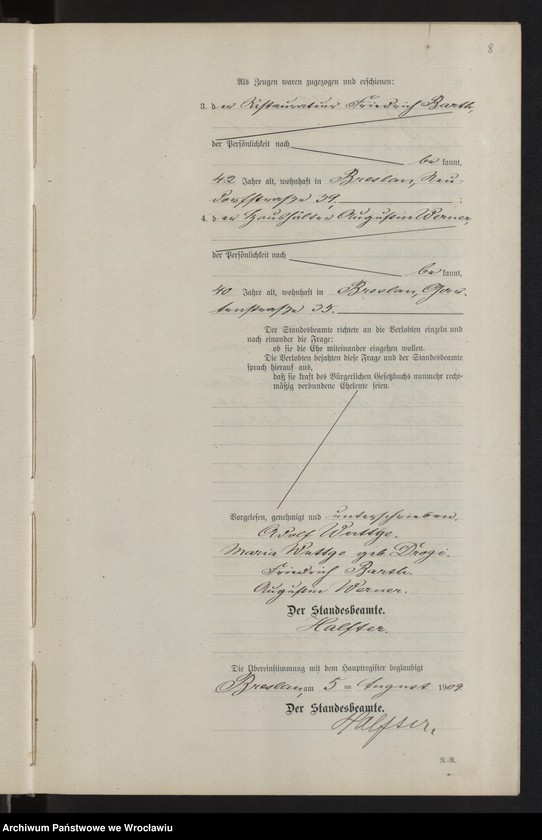 8
Als Zeugen waren zugezogen und erschienen:
3. der Restaurateur Friedrich Barth,
der Persönlichkeit nach
be kannt,
42 Jahre alt, wohnhaft in Breslau, Neu-
dorfstraße 39, ;
4. der Haushälter Augustin Werner,
der Persönlichkeit nach
be kannt,
40 Jahre alt, wohnhaft in Breslau, Gar-
tenstraße 35.
Der Standesbeamte richtete an die Verlobten einzeln und
nach einander die Frage:
ob sie die Ehe miteinander eingehen wollen.
Die Verlobten bejahten diese Frage und der Standesbeamte
sprach hierauf aus,
daß sie kraft des Bürgerlichen Gesetzbuchs nunmehr recht-
mäßig verbundene Eheleute seien.
Vorgelesen, genehmigt und unterschrieben.
Adolf Wuttge.
Maria Wuttge geb. Drogi.
Friedrich Barth.
Augustin Werner.
Der Standesbeamte.
Halfter.
Die Übereinstimmung mit dem Hauptregister beglaubigt
Breslau, am 5 ten August 1909.
Der Standesbeamte.
Halfter.
N.-R.
Archiwum Państwowe we Wrocławiu